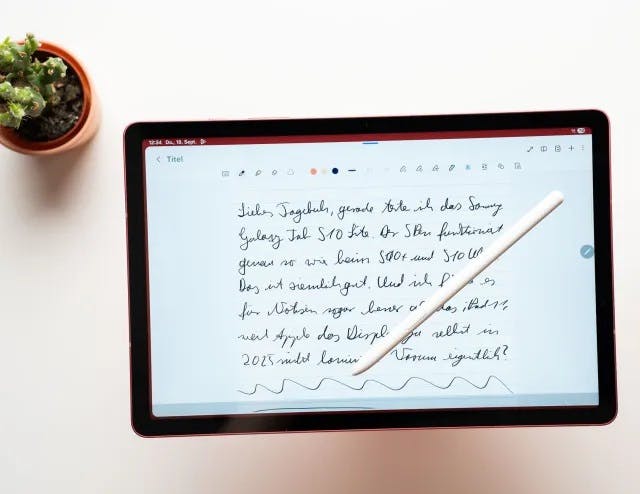 12:34 Do., 18. Sept.
Titel
Liebes Tagebuch, gerade teste ich das Samsung
Galaxy Tab S10 Lite. Der SPen funktioniert
genau so wie beim S10+ und S10
Das ist ziemlich gut. Und ich es
für Notizen sogar besser als das iPad
weil Apple das Display ja selbst in
2025 nicht Warum eigentlich?